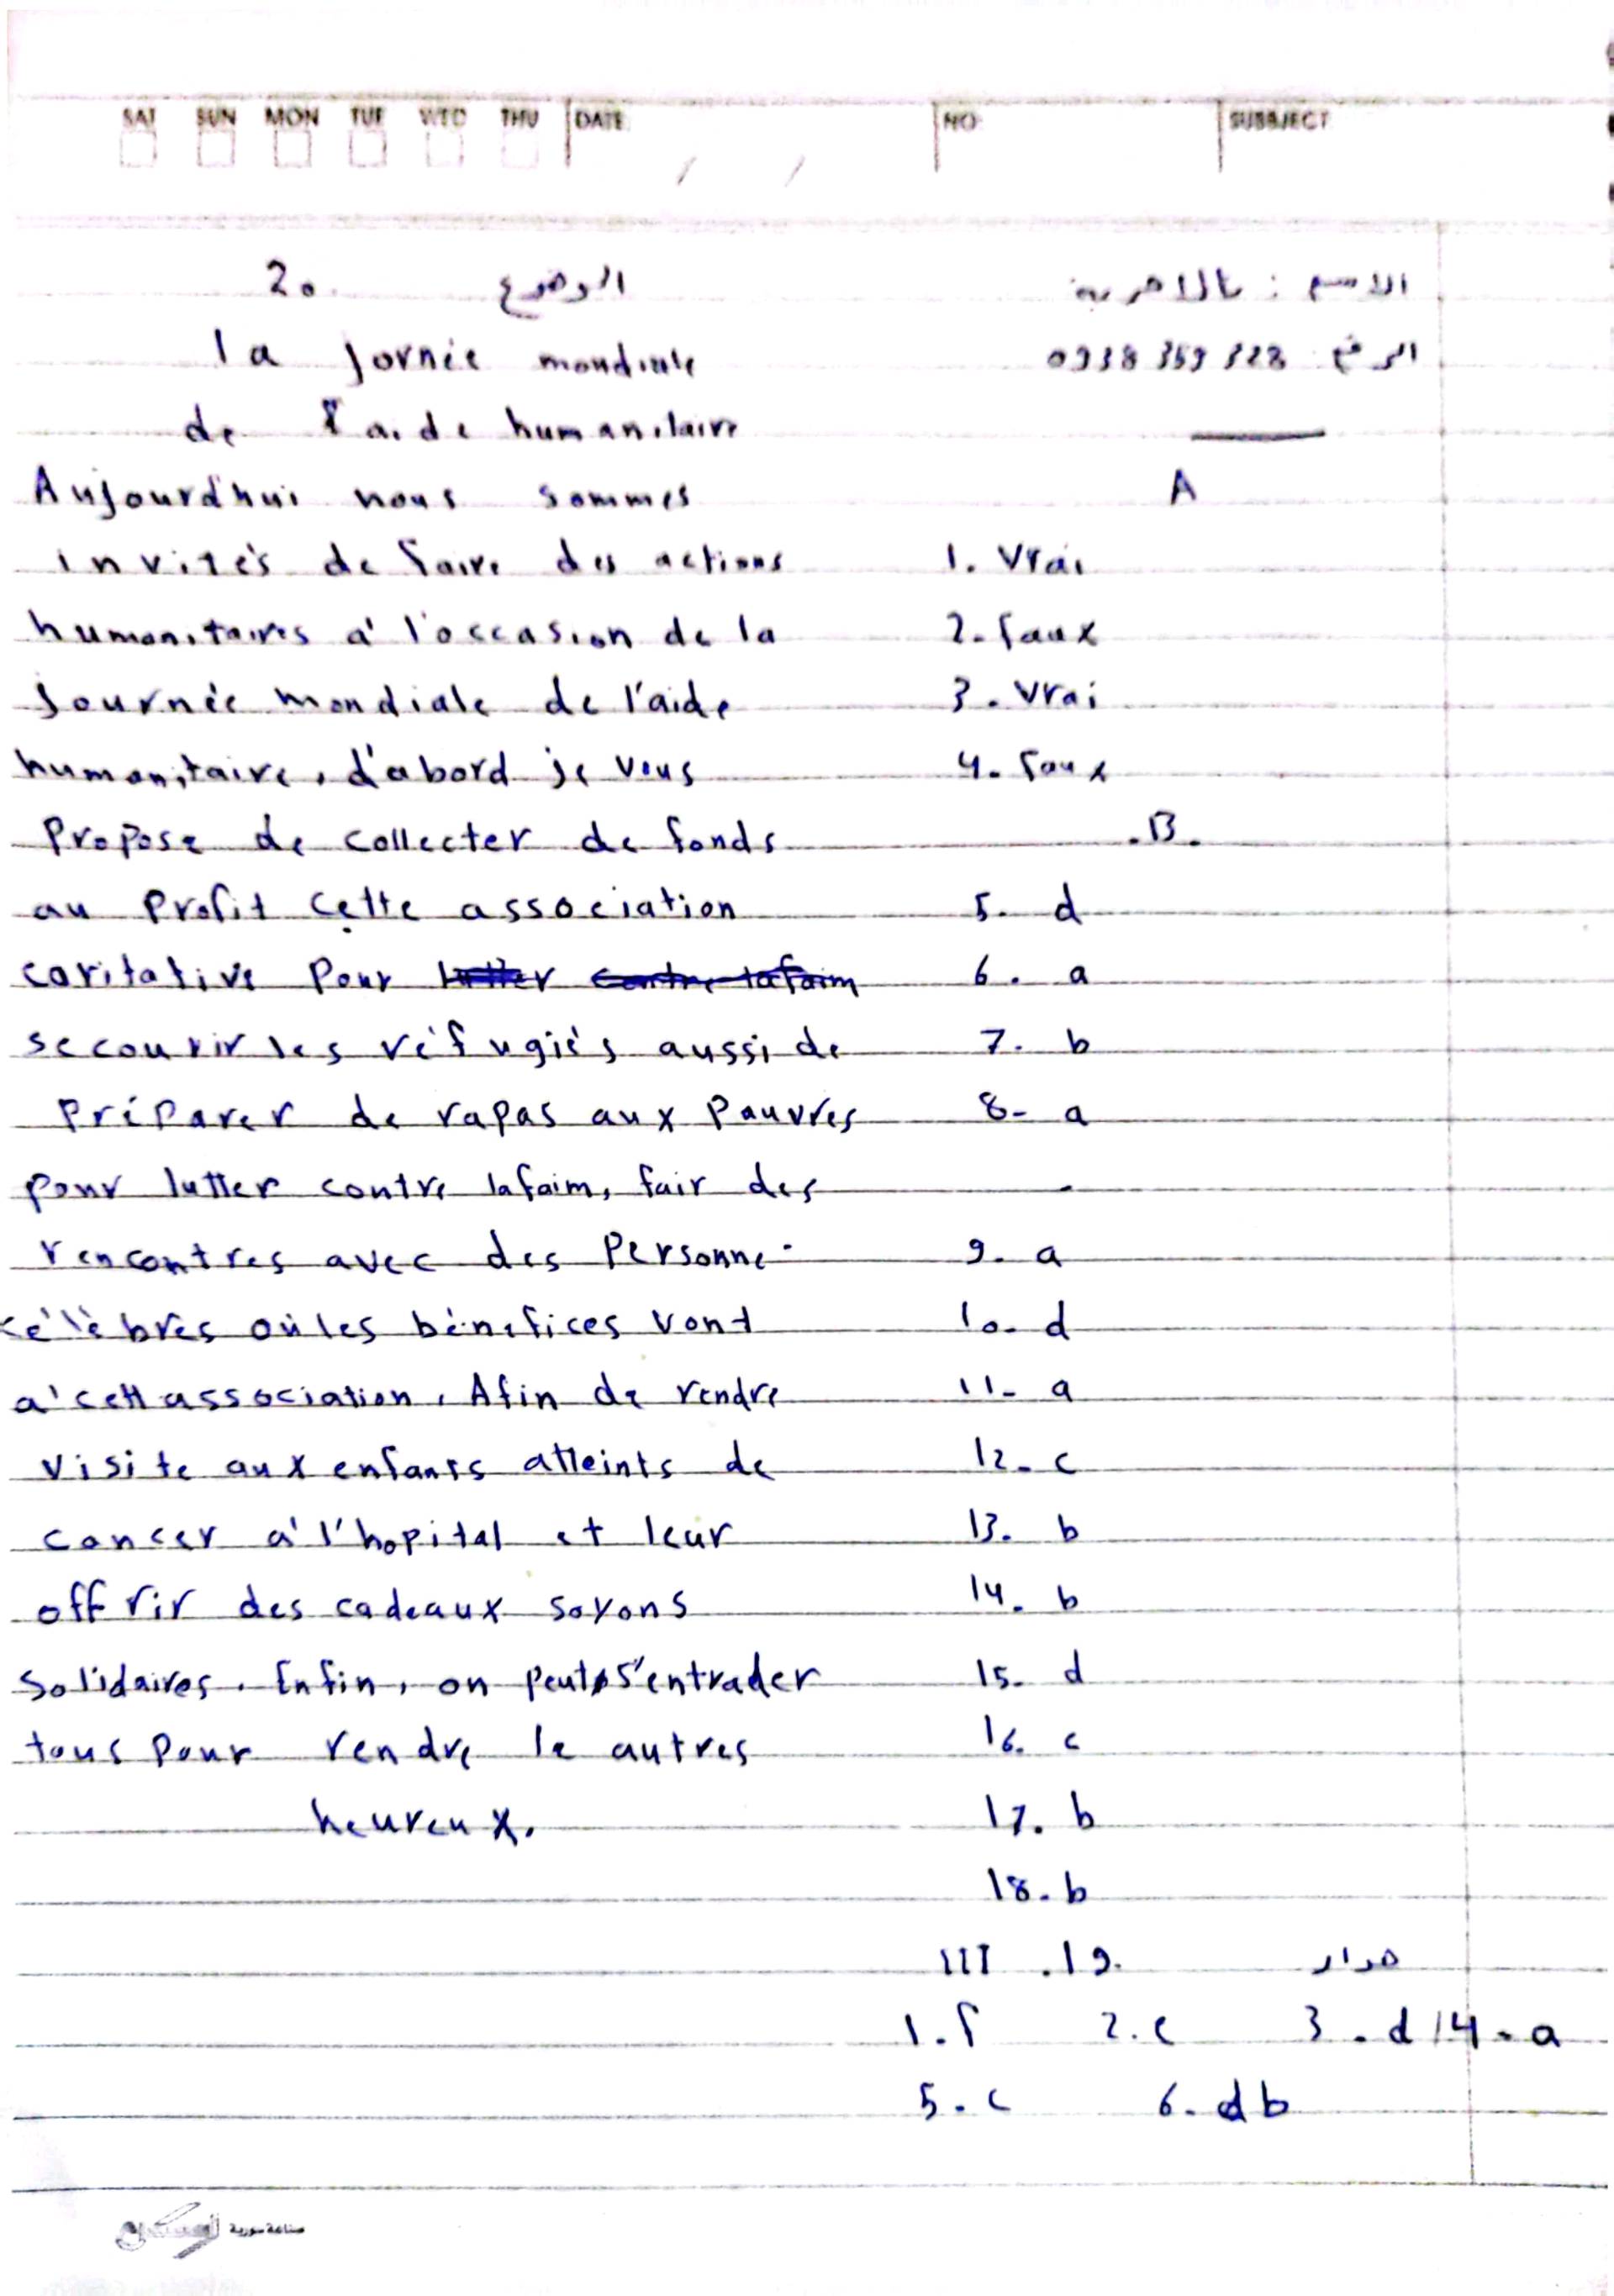 SAT SUN MON TUE WED THU DATE / / NO: SUBBJECT
الاسم :
الرقم 0938 359 328
A
1. Vrai
2. faux
3. Vrai
4. faux
.B.
5. d
6. a
7. b
8- a
9. a
10. d
11- a
12. c
13. b
14. b
15. d
16. c
17. b
18. b
III .19. حوار
1. f 2. c 3. d / 4. a
5. c 6. d b
20. الوضوع
la Jornée mondiale
de l'aide humanitaire
Aujourd'hui nous sommes
invités de faire des actions
humanitaires à l'occasion de la
Journée mondiale de l'aide
humanitaire, d'abord je vous
propose de collecter de fonds
au profit cette association
caritative pour lutter contre la faim
secourir les réfugiés aussi de
préparer de rapas aux pauvres
pour lutter contre la faim, fair des
rencontres avec des personne
célèbres où les bénéfices vont
à cett association. Afin de rendre
visite aux enfants atteints de
cancer à l'hopital et leur
offrir des cadeaux soyons
solidaires. Enfin, on peut s'entrader
tous pour rendre le autres
heureux.
صناعة سورية